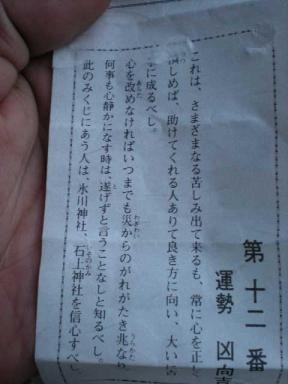 第十二番
運勢 凶向
これは、さまざまなる苦しみ出て来るも、常に心を正し
慎しめば、助けてくれる人ありて良き方に向い、大い
に成るべし。
心を改めなければいつまでも災からのがれがたき兆なり
何事も心静かになす時は、遂げずと言うことなしと知るべし。
此のみくじにあう人は、氷川神社、石上神社を信心すべし